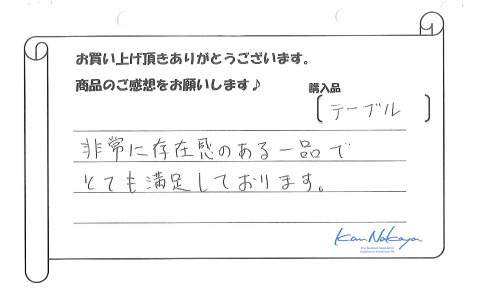 お買い上げ頂きありがとうございます。
商品のご感想をお願いします♪
購入品
[テーブル]
非常に存在感のある一品で
とても満足しております。
Kan Nakaya